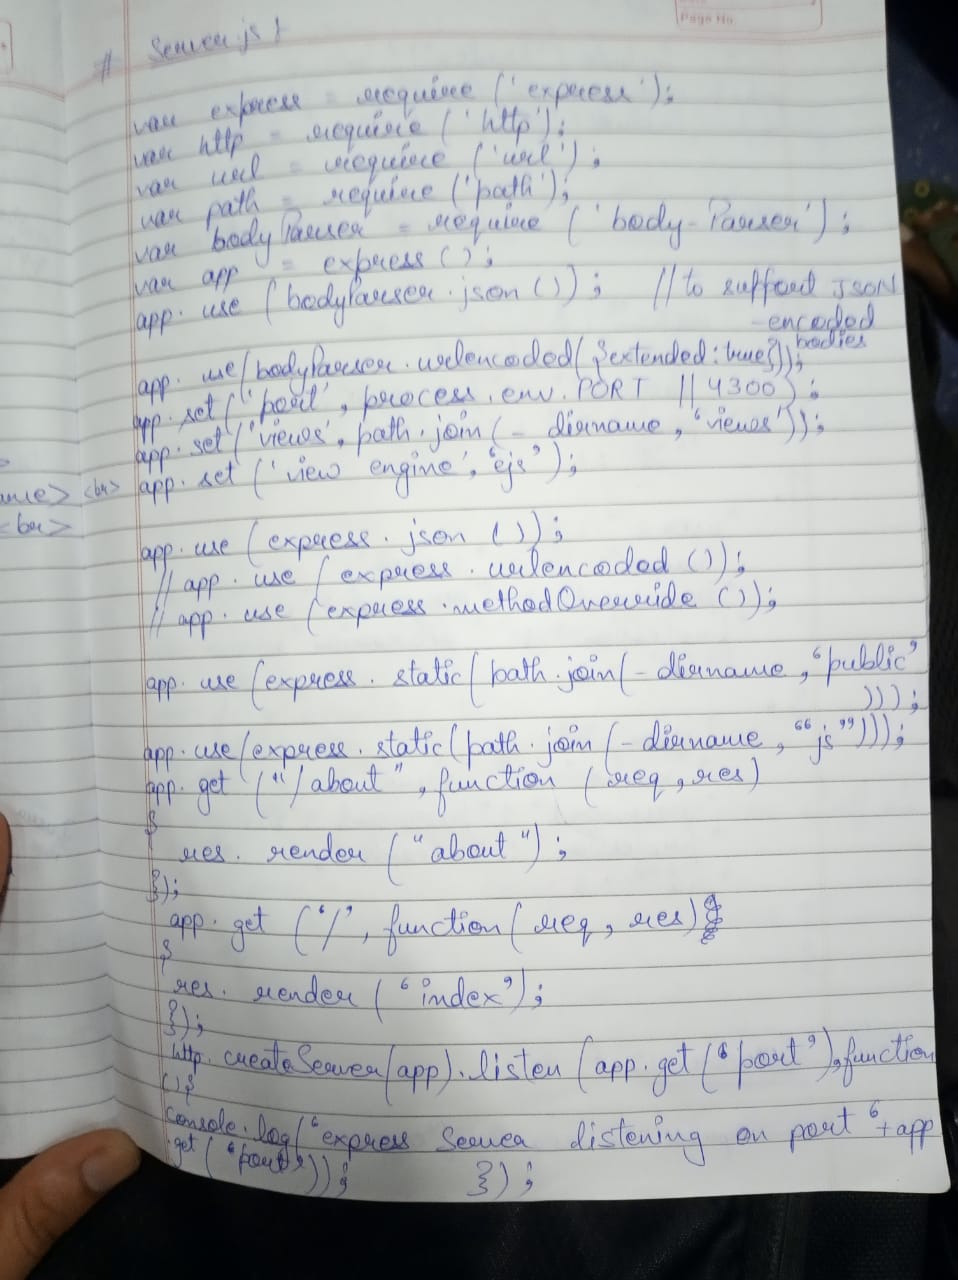 Page No.
# Server.js
var express = require ('express');
var http = require ('http');
var url = require ('url');
var path = require ('path');
var bodyParser = require ('body-Parser');
var app = express ();
app. use (bodyParser. json ()); // to support JSON
-encoded
bodies
app. use (bodyParser. urlencoded ({extended: true}));
app. set ('port', process. env. PORT || 4300);
app. set ('views', path. join (_ dirname, 'views'));
app. set ('view engine', 'ejs');
<br>
<br>
app. use (express. json ());
// app. use (express. urlencoded ());
// app. use (express. methodOverride ());
app. use (express. static (path. join (_ dirname, 'public'
)));
app. use (express. static (path. join (_ dirname, "js")));
app. get ("/about", function (req, res)
{
res. render ("about");
});
app. get ('/', function (req, res)
{
res. render ('index');
});
http. createServer (app). listen (app. get ('port'), function
() {
console. log ('express Server listening on port ' + app
. get ('port')); });